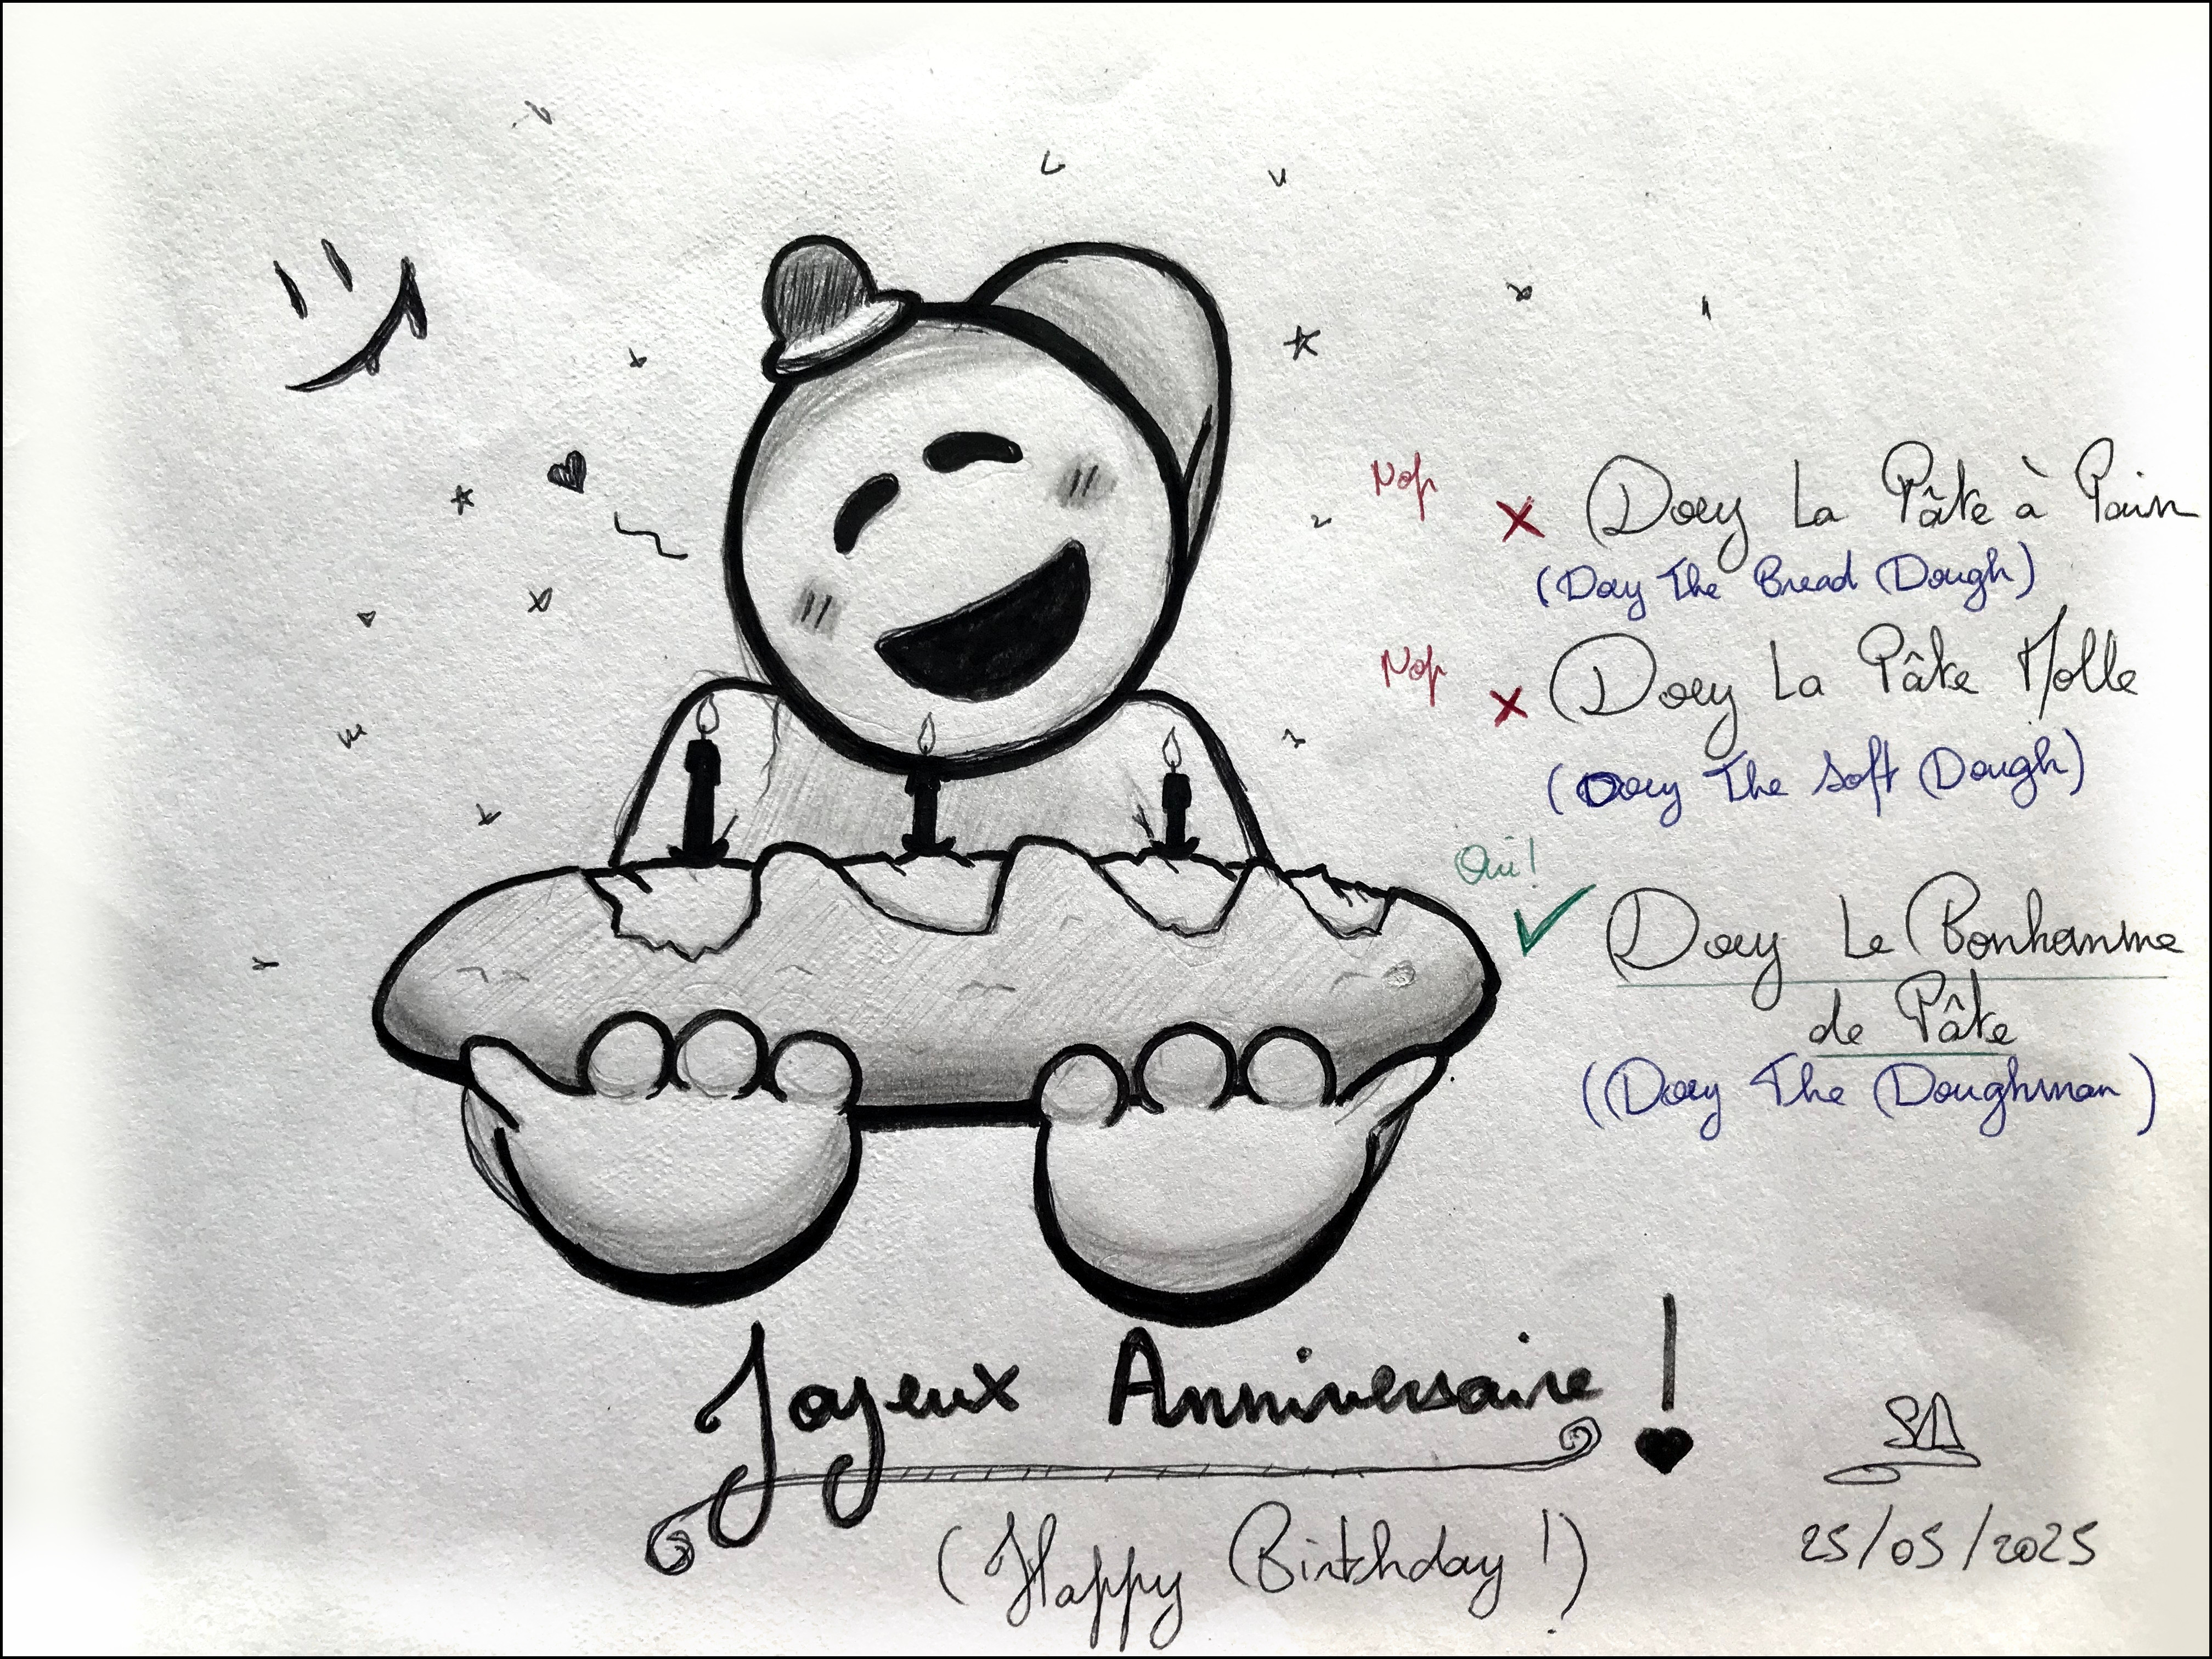 Nop
x Doey La Pâte à Pain
(Doey The Bread Dough)
Nop
x Doey La Pâte Molle
(Doey The Soft Dough)
Oui!
✓ Doey Le Bonhomme
de Pâte
(Doey The Doughman)
Joyeux Anniversaire !
(Happy Birthday !)
SA
25/05/2025